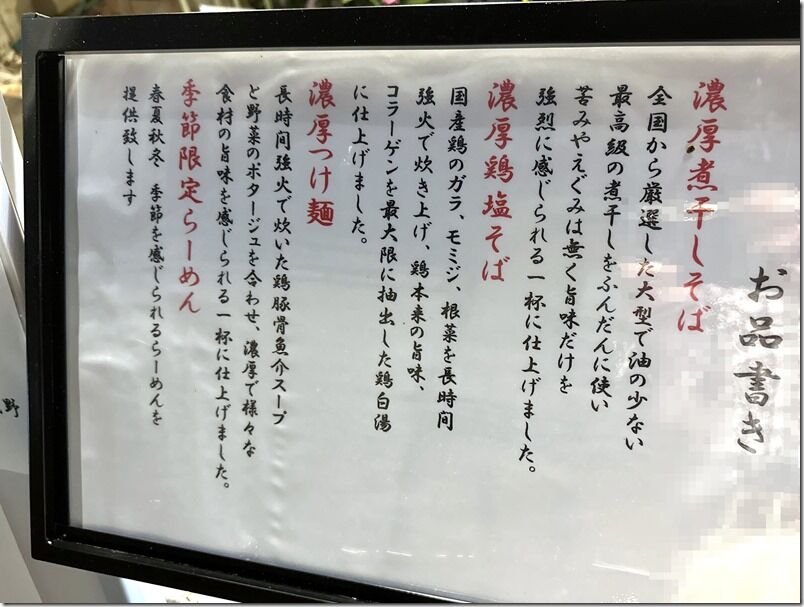 お品書き
濃厚煮干しそば
全国から厳選した大型で油の少ない
最高級の煮干しをふんだんに使い
苦みやえぐみは無く旨味だけを
強烈に感じられる一杯に仕上げました。
濃厚鶏塩そば
国産鶏のガラ、モミジ、根菜を長時間
強火で炊き上げ、鶏本来の旨味、
コラーゲンを最大限に抽出した鶏白湯
に仕上げました。
濃厚つけ麺
長時間強火で炊いた鶏豚骨魚介スープ
と野菜のポタージュを合わせ、濃厚で様々な
食材の旨味を感じられる一杯に仕上げました。
季節限定らーめん
春夏秋冬 季節を感じられるらーめんを
提供致します
野